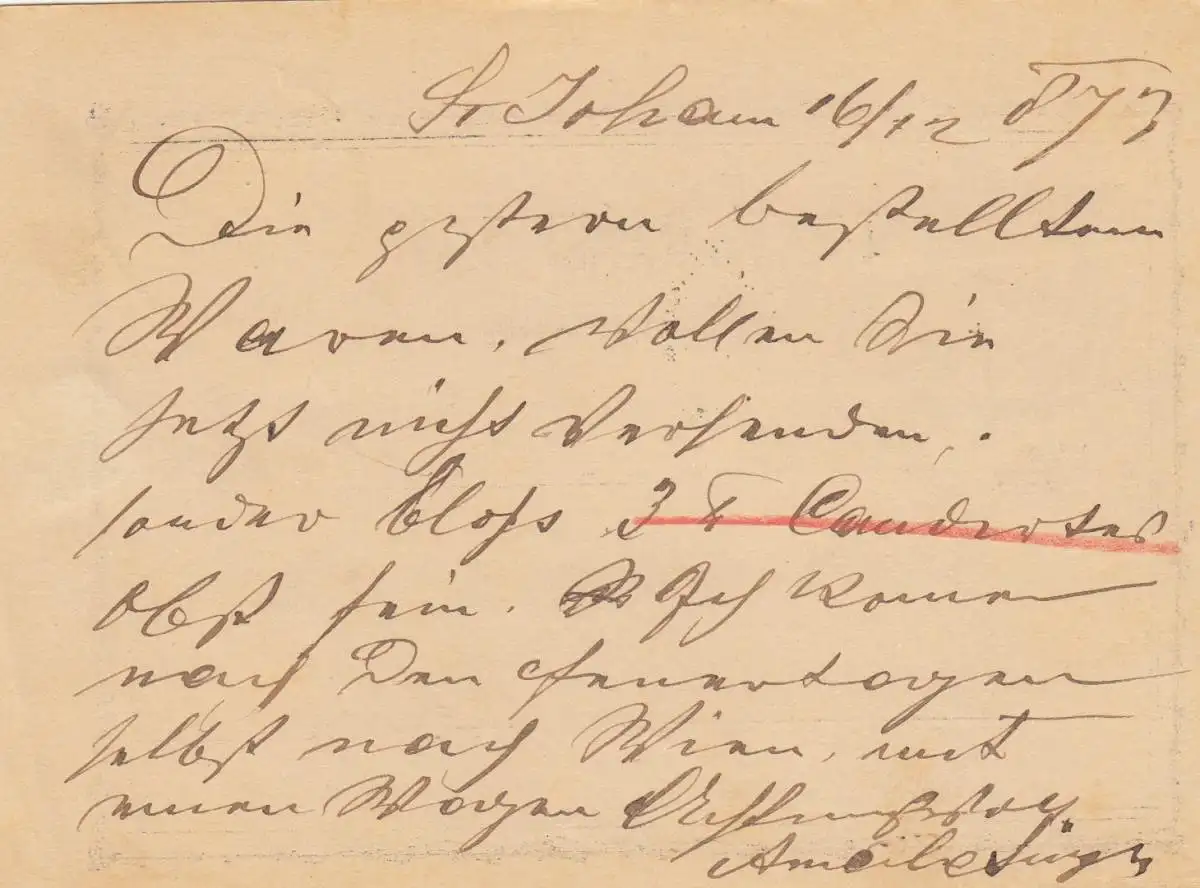 St Johann 16/12 873
Die gestern bestellten
Waren. Wollen Sie
jetzt nicht Versenden,.
sonder bloss 3 ℔ Candertes
obst sein. Ich komen
nach Den feuertagen
selbst nach Wien, mit
einen Wagen Achtungsvoll